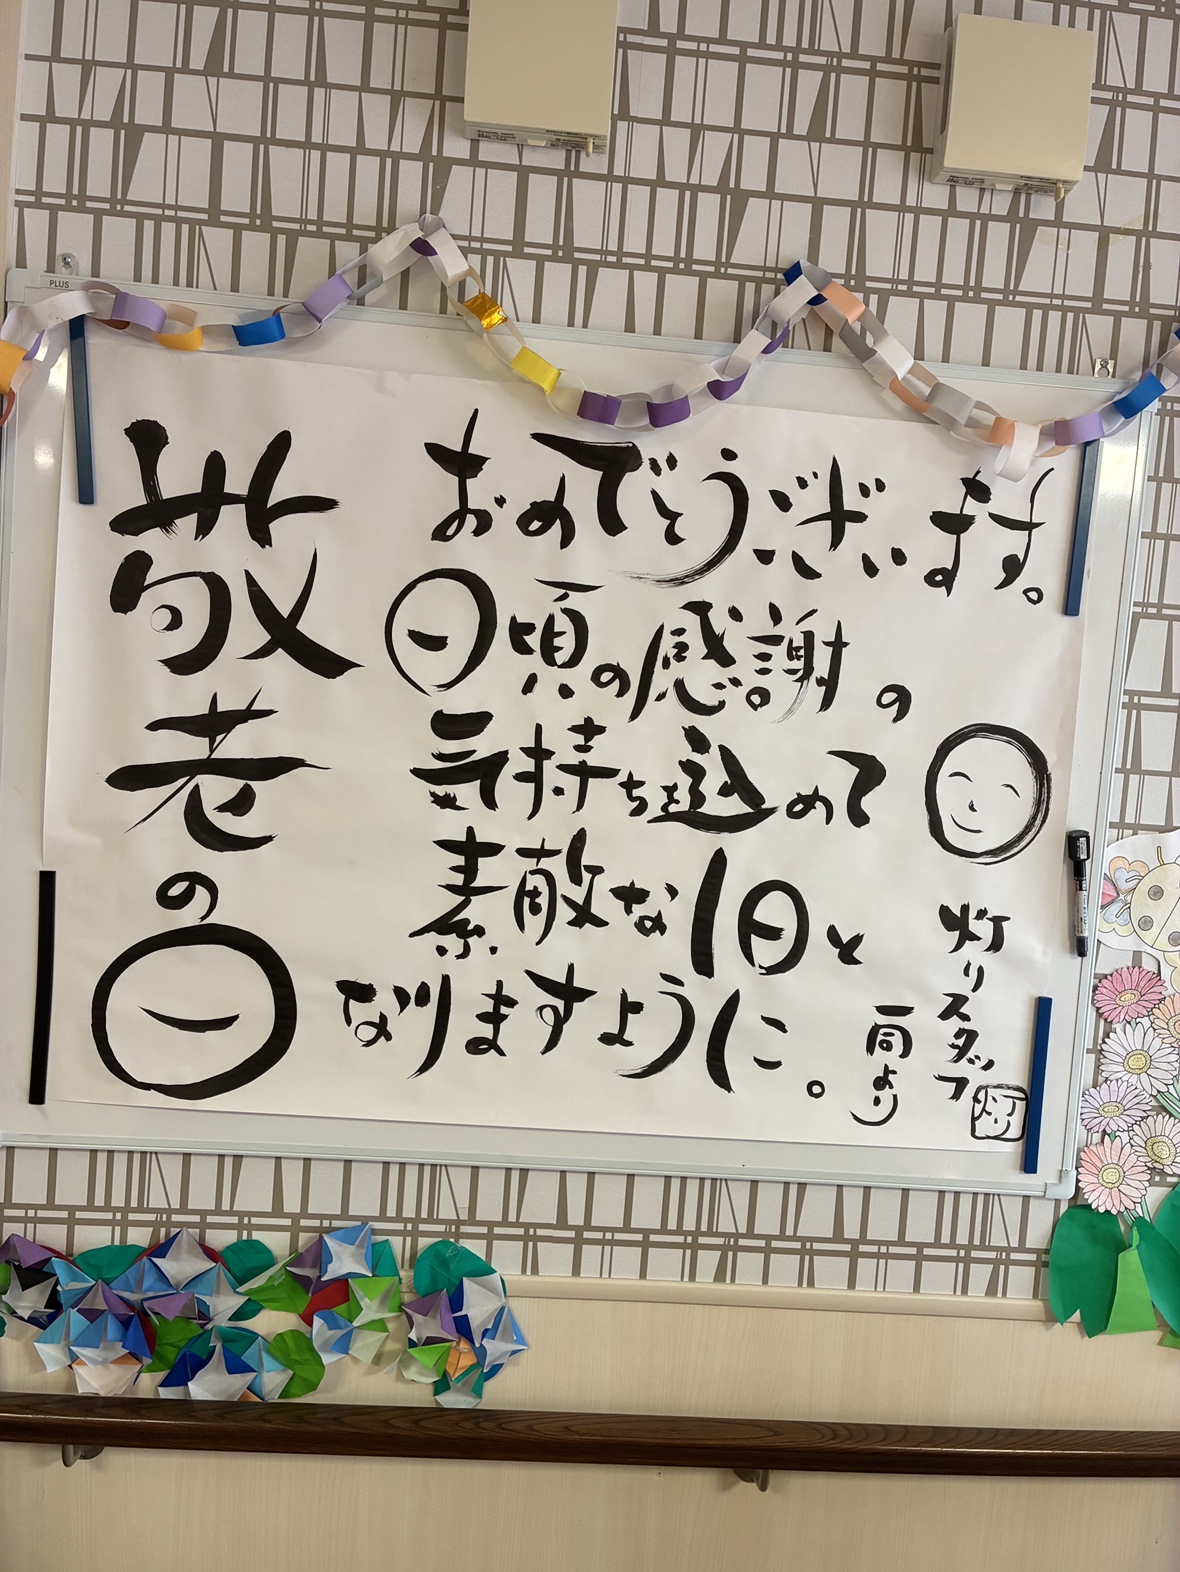 敬老の日
おめでとうございます。
日頃の感謝の
気持ちを込めて
素敵な1日と
なりますように。
灯りスタッフ
一同より
灯り
PLUS